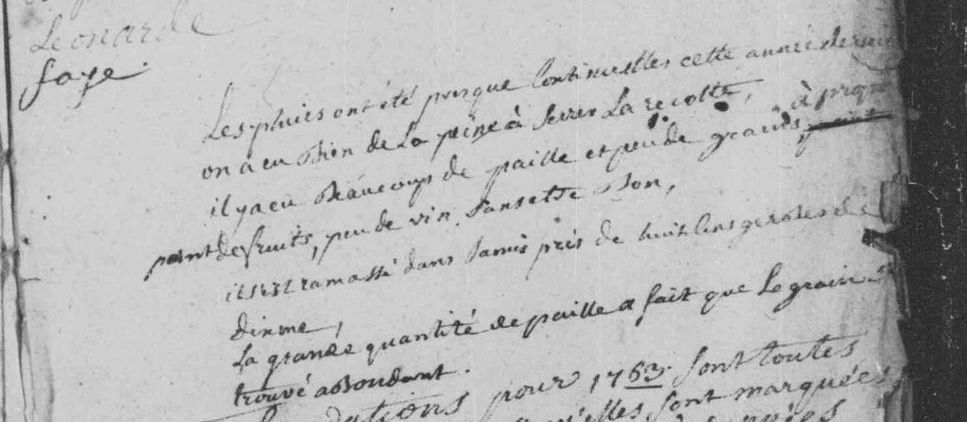 Leonarde
faye.
Les pluies ont été presque Continuelles cette année derni
on a eu Bien de La peine à serrer La recolte,
il y a eu Beaucoup de paille et peu de grains, à propo
point de fruits, peu de vin, sans estre Bon,
il s'est ramassé dans pres de huit Cens gerbes de
dixme,
La grande quantité de paille a fait que Le grain s'
trouvé abondant.
pour 1763. sont toutes
elles sont marquées